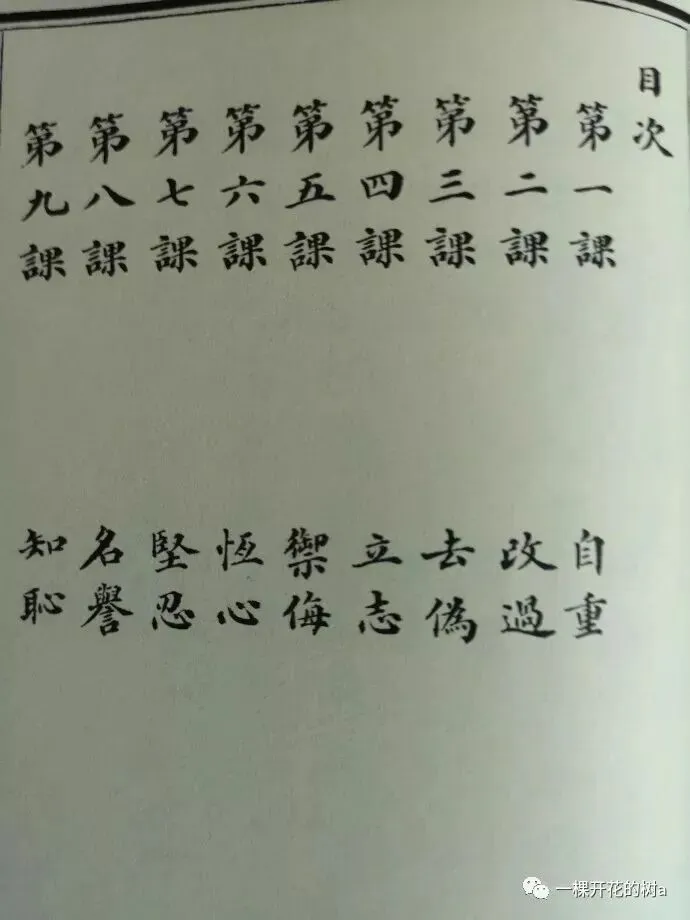 目次
第一課 自重
第二課 改過
第三課 去偽
第四課 立志
第五課 禦侮
第六課 恆心
第七課 堅忍
第八課 名譽
第九課 知恥
一棵开花的树a